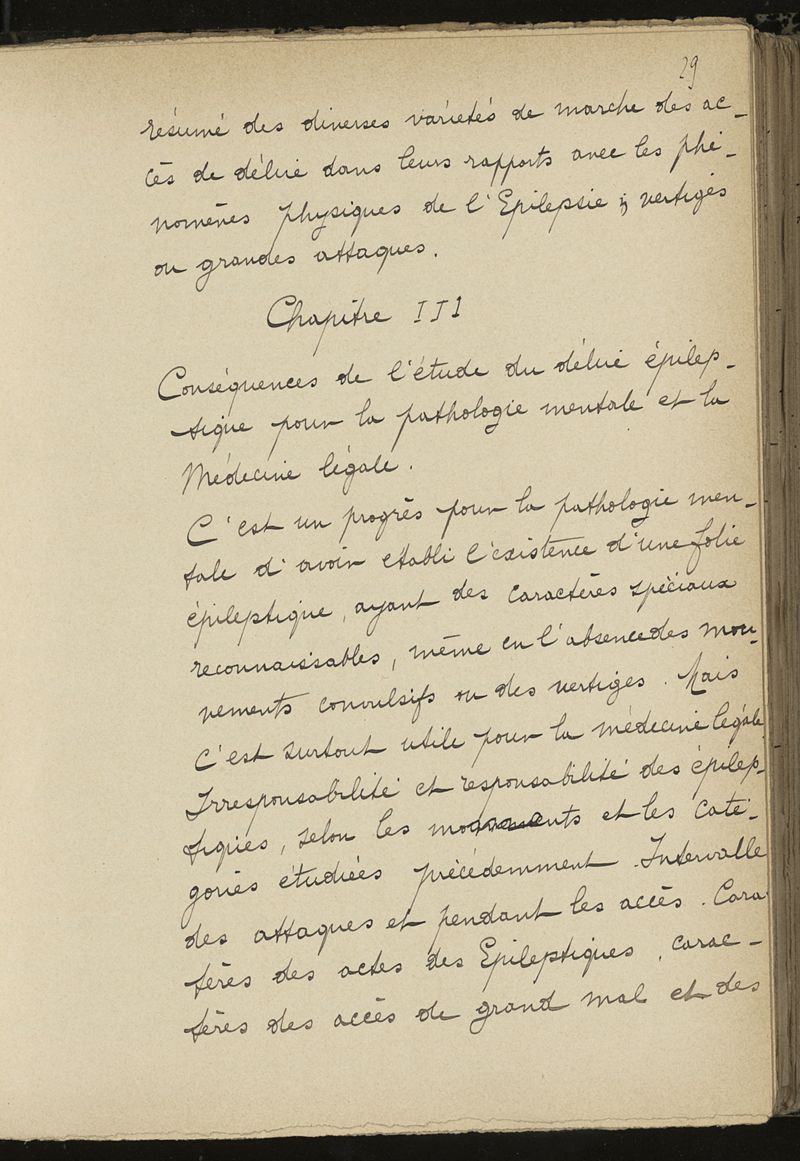 29
résumé des diverses variétés de marche des ac-
cès de délire dans leurs rapports avec les phé-
nomènes physiques de l'Epilepsie ; vertiges
ou grandes attaques.
Chapitre III
Conséquences de l'étude du délire épilep-
tique pour la pathologie mentale et la
Médecine légale.
C'est un progrès pour la pathologie men-
tale d'avoir etabli l'existence d'une folie
épileptique, ayant des caractères spéciaux
reconnaissables, même en l'absence des mou-
vements convulsifs ou des vertiges. Mais
c'est surtout utile pour la médecine légale
Irresponsabilité et responsabilité des épilep-
tiques, selon les moments et les caté-
gories étudiées précédemment. Intervalle
des attaques et pendant les accès. Cara
tères des actes des Epileptiques, carac-
tères des accès de grand mal et des